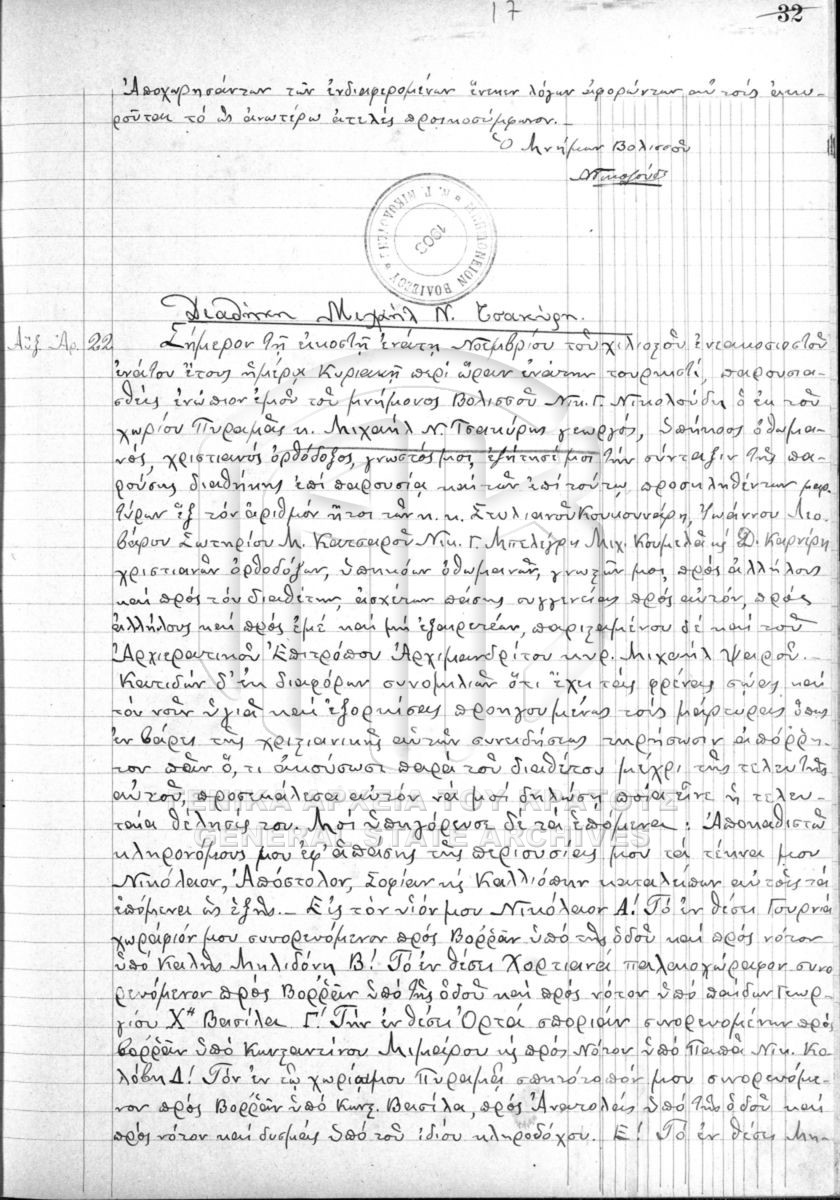 17
32
Ἀποχωρησάντων τῶν ἐνδιαφερομένων ἕνεκεν λόγων ἀφορώντων αὐτοῖς ἀκυ-
ροῦται τὸ ὡς ἀνωτέρω ἀτελὲς προικοσύμφωνον.—
Ὁ Μνήμων Βολισσοῦ
ΜΝΗΜΟΝΕΙΟΝ ΒΟΛΙΣΣΟΥ Ν. Γ. ΝΙΚΟΛΟΥΔΗΣ
1903
Διαθήκη Μιχαὴλ Ν. Τσακύρη.
Αὔξ Ἀρ. 22 Σήμερον τῇ εἰκοστῇ ἐνάτῃ Νοεμβρίου τοῦ χιλιοστοῦ ἐνεακοσιοστοῦ
ἐνάτου ἔτους ἡμέρᾳ Κυριακῇ περὶ ὥραν ἐνάτην τουρκιστί, παρουσια-
σθεὶς ἐνώπιον ἐμοῦ τοῦ μνήμονος Βολισσοῦ Νικ. Γ. Νικολούδη ὁ ἐκ τοῦ
χωρίου Πυραμᾶς κ. Μιχαὴλ Ν. Τσακύρης γεωργός, ὑπήκοος ὀθωμα-
νός, χριστιανὸς ὀρθόδοξος, γνωστός μοι, ἐζήτησέ μοι τὴν σύνταξιν τῆς πα-
ρούσης διαθήκης ἐπὶ παρουσίᾳ καὶ τῶν ἐπὶ τούτῳ προσκληθέντων μαρ-
τύρων ἓξ τὸν ἀριθμὸν ἤτοι τῶν κ. κ. Στυλιανοῦ Κουκουνάρη, Ἰωάννου Λεο-
βάρου Σωτηρίου Μ. Κατσαροῦ Νικ. Γ. Μπελέγρη Μιχ. Κουμελᾶ κς Δ. Καρνίρη
χριστιανῶν ὀρθοδόξων, ὑπηκόων ὀθωμανῶν, γνωστῶν μοι, πρὸς ἀλλήλους
καὶ πρὸς τὸν διαθέτην, ἀσχέτων πάσης συγγενείας πρὸς αὐτόν, πρὸς
ἀλλήλους καὶ πρὸς ἐμὲ καὶ μὴ ἐξαιρετέων, παρισταμένου δὲ καὶ τοῦ
Ἀρχιερατικοῦ Ἐπιτρόπου Ἀρχιμανδρίτου κυρ. Μιχαὴλ Ψαροῦ.—
Κατιδὼν δ' ἐκ διαφόρων συνομιλιῶν ὅτι ἔχει τὰς φρένας σώας καὶ
τὸν νοῦν ὑγιᾶ καὶ ἐξορκίσας προηγουμένως τοὺς μάρτυρας ὅπως
ἐν βάρει τῆς χριστιανικῆς αὐτῶν συνειδήσεως τηρήσωσιν ἀπόρρη-
τον πᾶν ὅ, τι ἀκούσωσι παρὰ τοῦ διαθέτου μέχρι τῆς τελευτῆς
αὐτοῦ, προσεκάλεσα αὐτὸν νὰ μοὶ δηλώσῃ ποία εἶνε ἡ τελευ-
ταία θέλησίς του. Μοὶ ὑπηγόρευσε δὲ τὰ ἑπόμενα: Ἀποκαθιστῶ
κληρονόμους μου ἐφ' ἁπάσης τῆς περιουσίας μου τὰ τέκνα μου
Νικόλαον, Ἀπόστολον, Σοφίαν κς Καλλιόπην καταλείπων αὐτοῖς τὰ
ἑπόμενα ὡς ἑξῆς.— Εἰς τὸν υἱόν μου Νικόλαον Α! Τὸ ἐν θέσει Γουρνὰ
χωράφιόν μου συνορευόμενον πρὸς Βορρᾶν ὑπὸ τῆς ὁδοῦ καὶ πρὸς νότον
ὑπὸ Καλῆς Μηλιδόνη Β! Τὸ ἐν θέσει Χορτιανὰ παλαιοχώραφον συνο-
ρευόμενον πρὸς Βορρᾶν ὑπὸ τῆς ὁδοῦ καὶ πρὸς νότον ὑπὸ παίδων Γεωρ-
γίου Χ" Βασίλα Γ! Τὴν ἐν θέσει Ὀρτὰ σποριὰν συνορευομένην πρὸς
βορρᾶν ὑπὸ Κωνσταντίνου Μιμάρου κς πρὸς Νότον ὑπὸ Παπᾶ Νικ. Κο-
λόβη Δ! Τὸν ἐν τῷ χωρίῳ μου Πυραμᾷ σπητότοπόν μου συνορευόμε-
νον πρὸς Βορρᾶν ὑπὸ Κωνστ. Βασίλα, πρὸς Ἀνατολὰς ὑπὸ τῆς ὁδοῦ καὶ
πρὸς νότον καὶ δυσμὰς ὑπὸ τοῦ ἰδίου κληροδόχου. Ε! Τὸ ἐν θέσει Μη-
ΓΕΝΙΚΑ ΑΡΧΕΙΑ ΤΟΥ ΚΡΑΤΟΥΣ
GENERAL STATE ARCHIVES